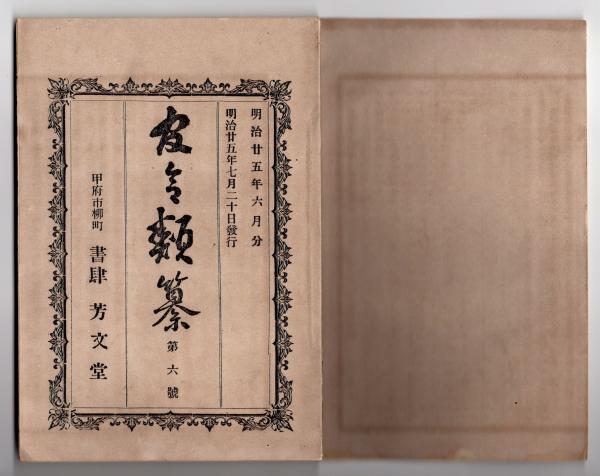 明治廿五年六月分
明治廿五年七月二十日發行
令類纂
第六號
甲府市柳町
書肆 芳文堂